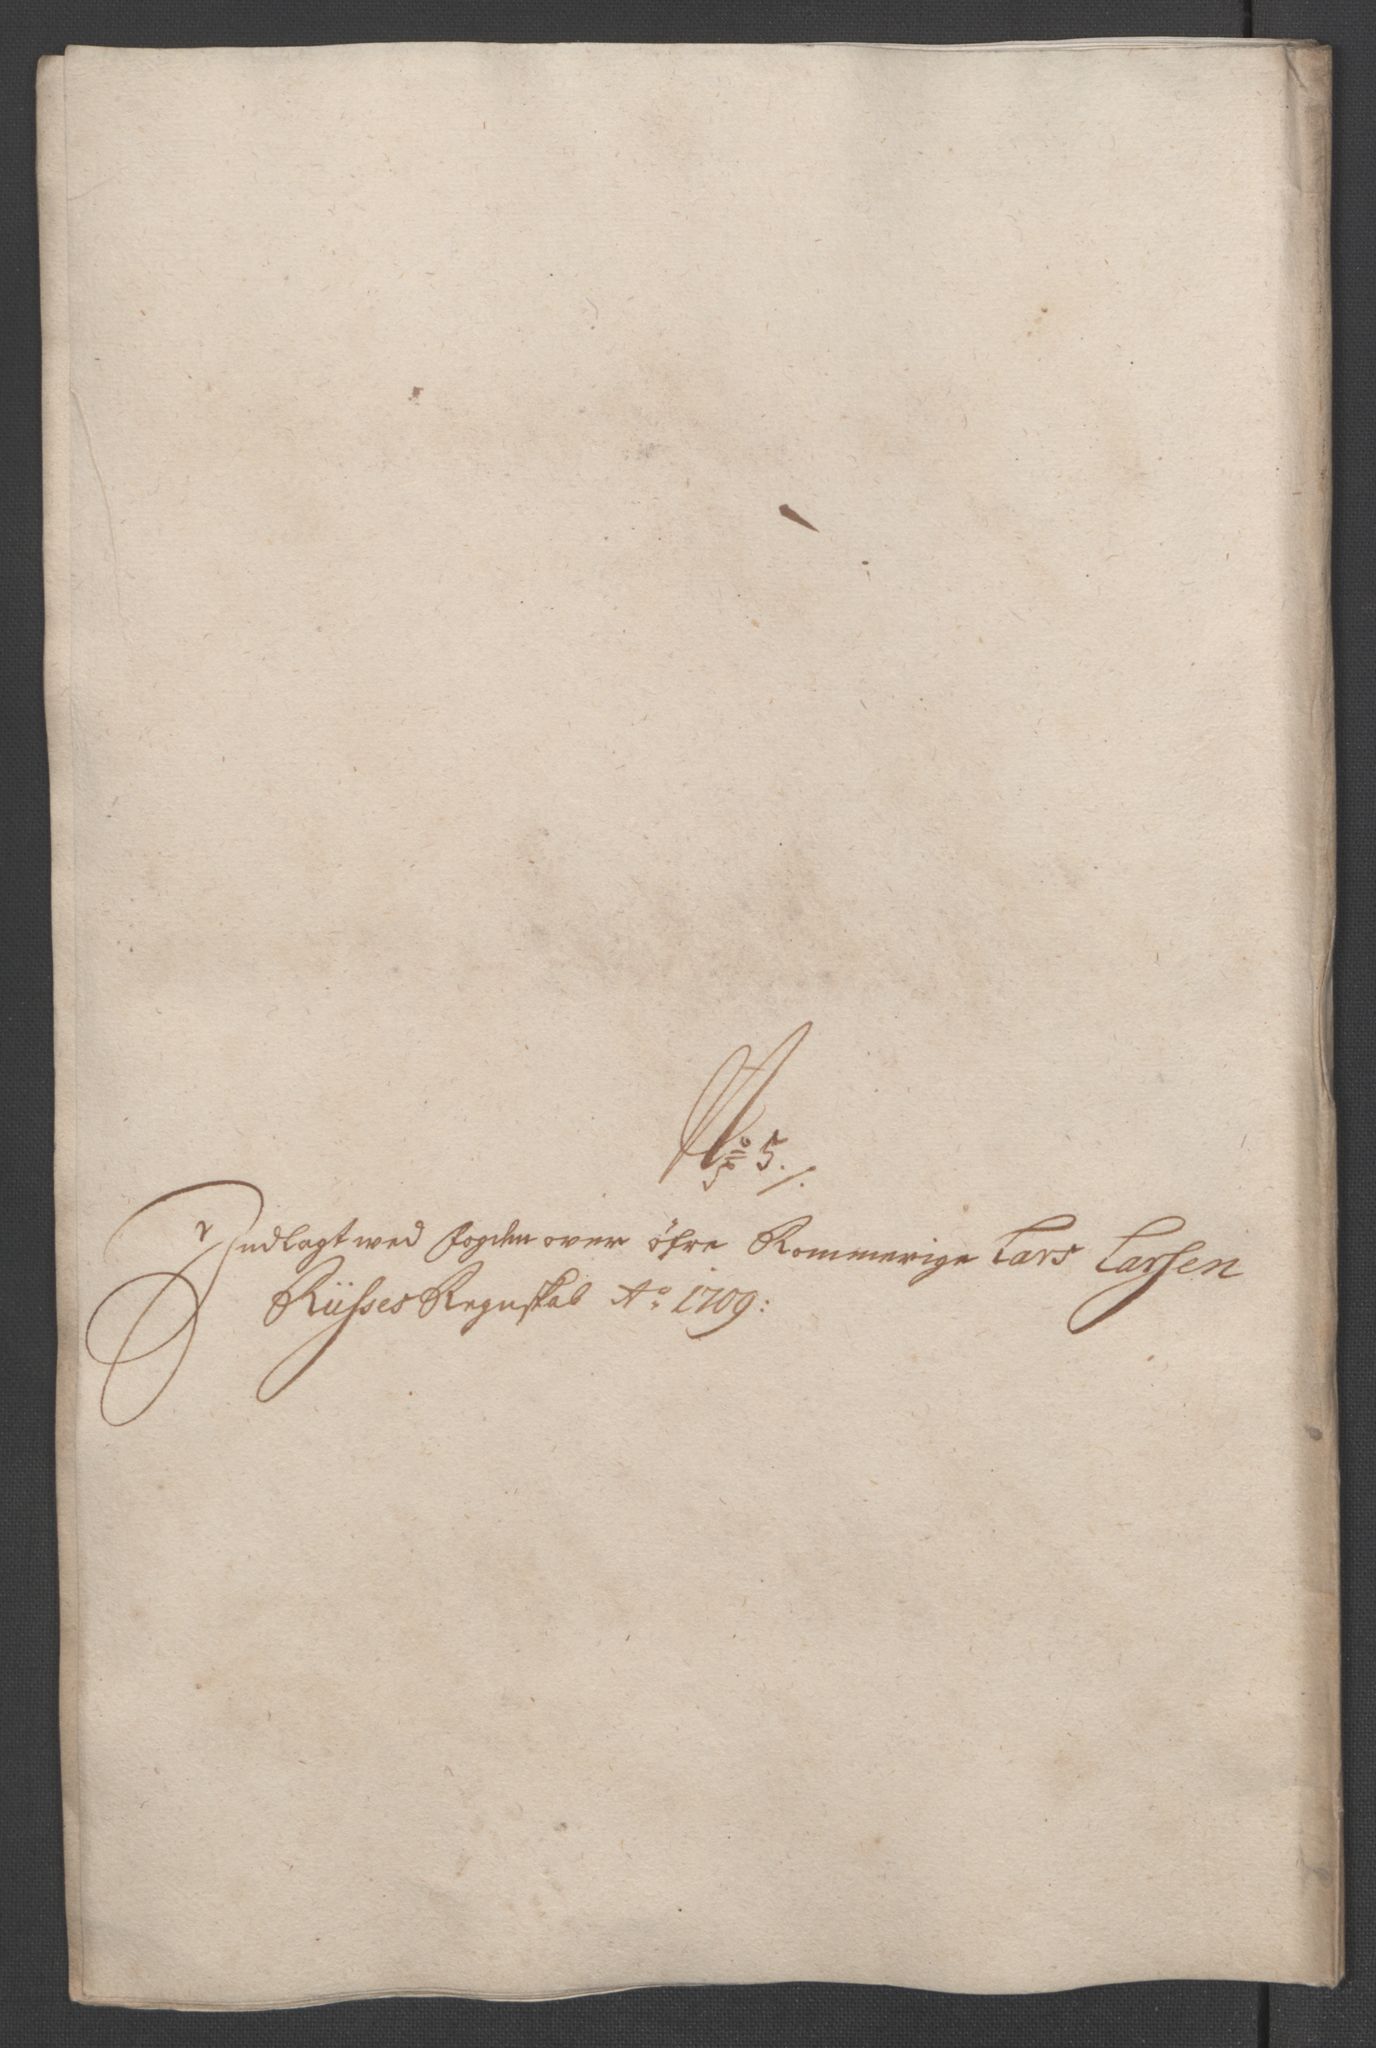 No 5.
Indlagt wed fogden over öfre Rommerige Lars Larsen
Riisses Regnskab Ao 1709: